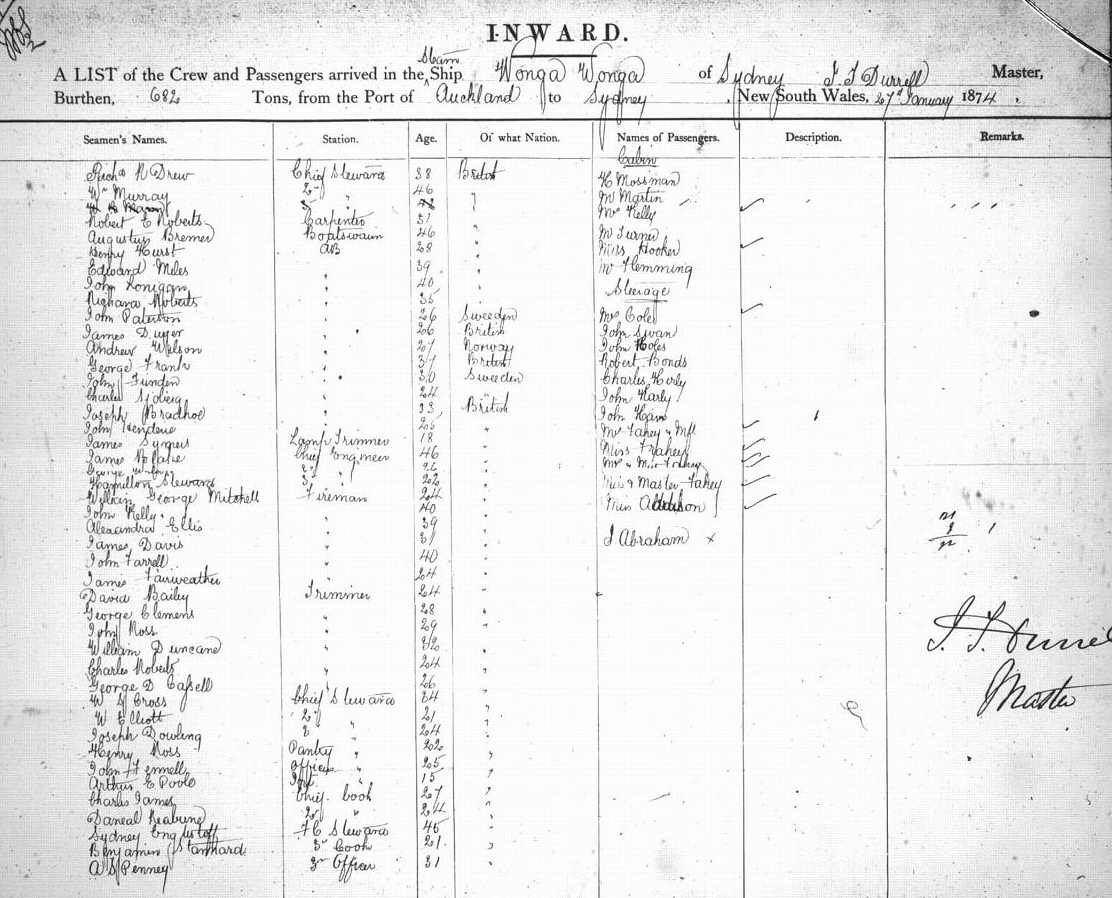 INWARD.
A LIST of the Crew and Passengers arrived in the Steam Ship Wonga Wonga of Sydney J. F Durrell Master,
Burthen, 682 Tons, from the Port of Auckland to Sydney, New South Wales, 27 January 1874.
Seamen's Names. Station. Age. Of what Nation. Names of Passengers. Description. Remarks.
Cabin
Richd N Drew Chief Steward 38 British H Mossman
Wm Murray 2d " 46 " Mr Martin
3 " Mrs Kelly
Robert E Roberts Carpenter 31 "
Augustus Bremer Boatswain 46 " Mr Turner
Henry Hurst AB 28 " Miss Hooker
Edward Miles " 39 " Mr Flemming
John Lonigan " 40 " Steerage
Richard Roberts " 35
John Paterson " 26 Sweeden Mrs Coles
James Dwyer " 26 British John Swan
Andrew Wilson " 27 Norway John Coles
George Frank " 37 British Robert Bonds
John Funden " 30 Sweeden Charles Harly
Charles Sjoberg " 24 " John Harly
Joseph Bradhoe " 33 British John Ham
John " Mr Fahey &
James Lamp Trimmer 18 " Miss Fahey
James Chief Engineer 46 " Mr & Miss Fahey
George 2d "
Hamilton Steward 3d " 22 " Miss & Master Fahey
William George Mitchell Fireman 24 " Miss Addison
John Kelly " 40 "
Alexandra Ellis " 39 "
James Davis " 31 " J Abraham x
John Farrell " 40 "
James Fairweather " 24 "
David Bailey Trimmer 24 "
George Clemens " 28 "
John Ross " 29 "
William Duncane " 32 "
Charles Roberts " 24 "
George D Cassell " 26 "
W J Cross Chief Steward 34 "
W Elliott 2d " 21 "
Joseph Dowling 3 " 24 "
Henry Ross Pantry " 22 "
John Fennell Officers " 25 "
Arthur E Poole " 15 "
Charles James Chief Cook 27 "
Daneal 2d " 24 "
Sydney FC Steward 45 "
Benjamin Stannard 3r Cook 21 "
A S Penney 3r Officer 31
J. F. Durrell
Master